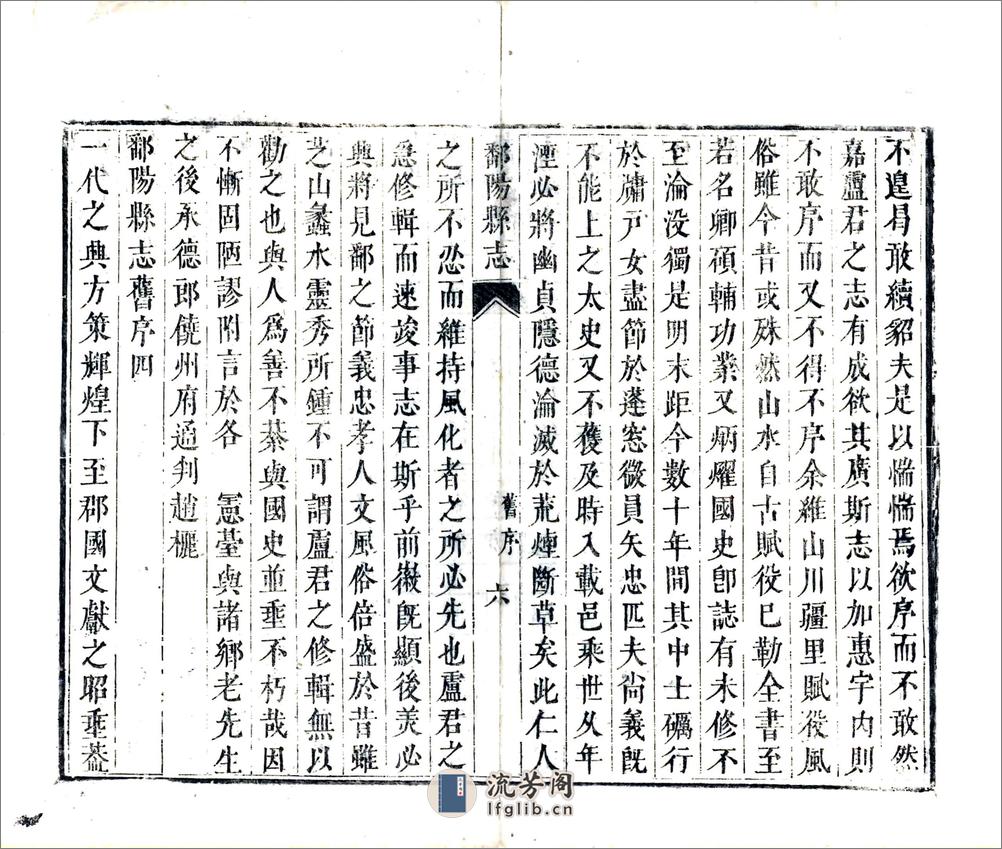 不遑曷敢續貂夫是以惴惴焉欲序而不敢然
嘉盧君之志有成欲其廣斯志以加惠宇內則
不敢序而又不得不序余維山川疆里賦役風
俗雖今昔或殊然山水自古賦役已勒全書至
若名卿碩輔功業又炳燿國史卽誌有未修不
至淪没獨是明末距今數十年間其中士礪行
於墉戸女盡節於蓬窓微員矢忠匹夫尙義旣
不能上之太史又不獲及時入載邑乘世乆年
湮必將幽貞隱德淪滅於荒煙斷草矣此仁人
鄱陽縣志
舊序
六
之所不忍而維持風化者之所必先也盧君之
急修輯而速竣事志在斯乎前徽旣顯後美必
興將見鄱之節義忠孝人文風俗倍盛於昔雖
芝山蠡水靈秀所鍾不可謂盧君之修輯無以
勸之也與人爲善不綦與國史並垂不朽哉因
不慚固陋謬附言於各 憲臺與諸鄉老先生
之後承德郎饒州府通判趙欐
鄱陽縣志舊序四
一代之興方策輝煌下至郡國文獻之昭垂葢
流芳阁
lfglib.cn